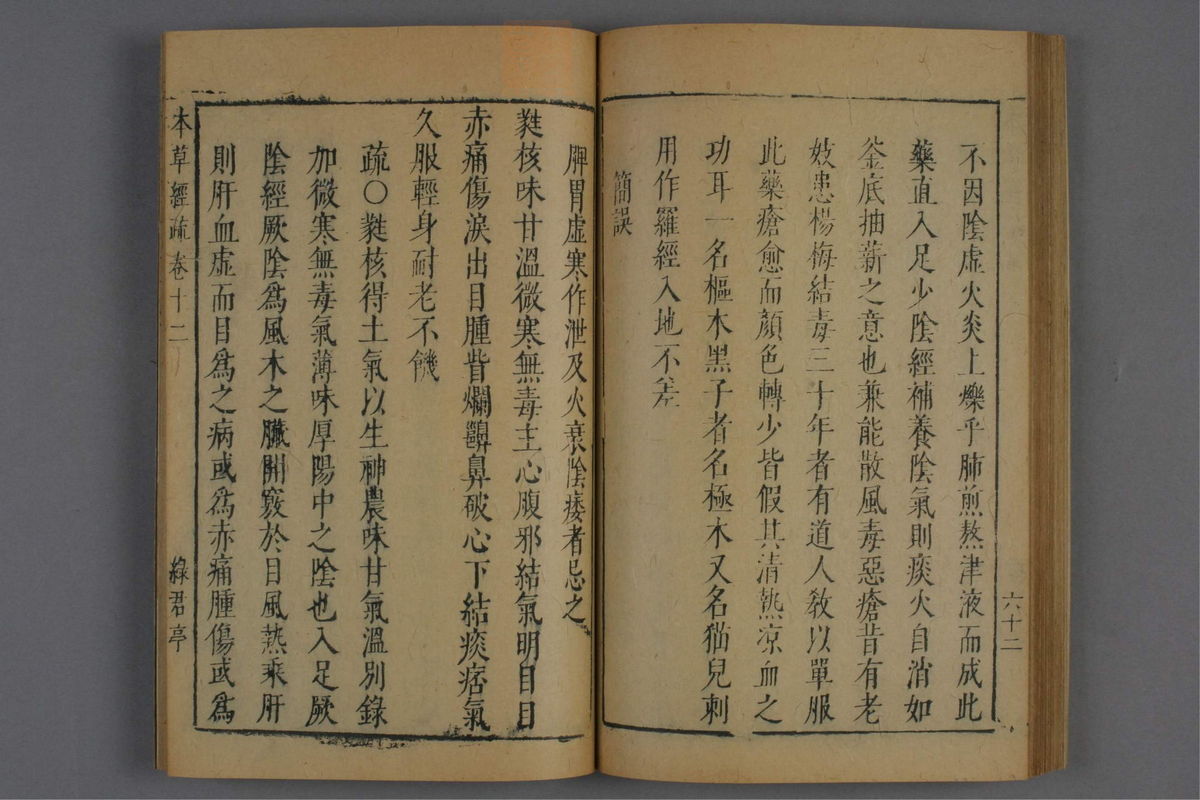 不因陰虛火炎上爍乎肺煎熬津液而成此
藥直入足少陰經補養陰氣則痰火自消如
釜底抽薪之意也兼能散風毒惡瘡昔有老
妓患楊梅結毒三十年者有道人教以單服
此藥瘡愈而顏色轉少皆假其清熱凉血之
功耳一名樞木黑子者名極木又名猫兒刺
用作羅經入地不差
簡誤
脾胃虛寒作泄及火衰陰痿者忌之
蕤核味甘溫微寒無毒主心腹邪結氣明目目
赤痛傷淚出目腫眥爛齆鼻破心下結痰痞氣
久服輕身耐老不饑
疏〇蕤核得土氣以生神農味甘氣溫別錄
加微寒無毒氣薄味厚陽中之陰也入足厥
陰經厥陰爲風木之臟開竅於目風熱乘肝
則肝血虛而目爲之病或爲赤痛腫傷或爲
本草經疏 卷十二 綠君亭
六十二